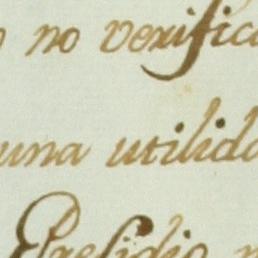 no verific
una utilida
Presidio